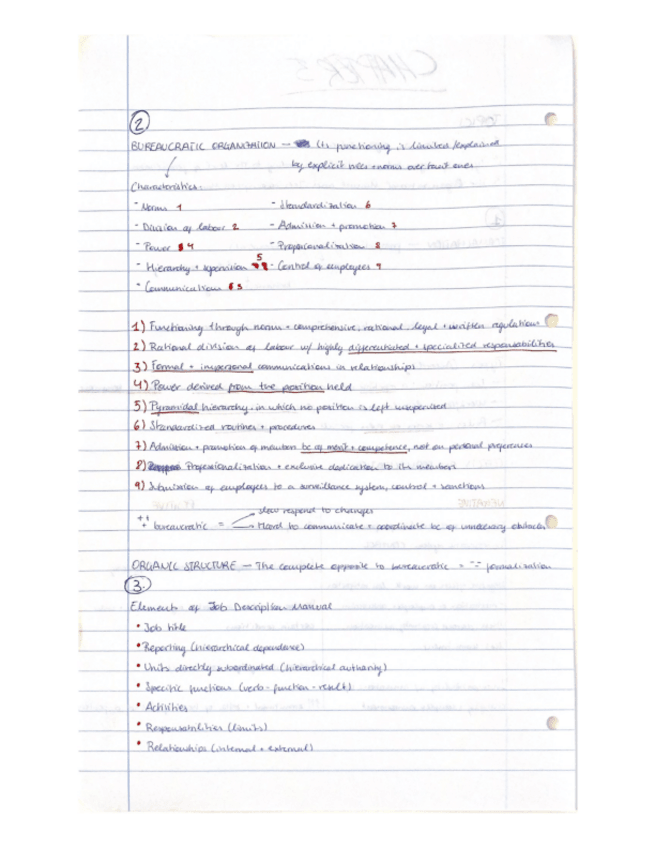 2
BUREAUCRATIC ORGANIZATION — Its functioning is limited/explained
by explicit rules + norms over tacit ones
Characteristics:
- Norms 1 - Standardization 6
- Division of labour 2 - Admission + promotion 7
- Power 4 - Proporsionalization 8
- Hierarchy + supervision 5 - Control of employees 9
- Communication 3
1) Functioning through norms + comprehensive, rational, legal + written regulations
2) Rational division of labour w/ highly differentiated + specialized responsabilities
3) Formal + impersonal communications in relationships
4) Power derived from the position held
5) Pyramidal hierarchy in which no position is left unsupervised
6) Standardized routines + procedures
7) Admission + promotion of members bc of merit + competence, not on personal preferences
8) Professionalization + exclusive dedication to its members
9) Submission of employees to a surveillance system, control + sanctions
slow respond to changes
++ + bureaucratic = Hard to communicate + coordinate bc of unnecessary obstacles
ORGANIC STRUCTURE — The complete opposite to bureaucratic = -- - formalization
3.
Elements of Job Description Manual
• Job title
• Reporting (hierarchical dependence)
• Units directly subordinated (hierarchical authority)
• Specific functions (verb - function - result)
• Activities
• Responsabilities (limits)
• Relationships (internal + external)